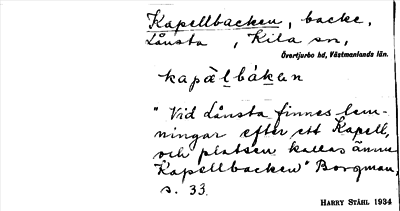 Kapellbacken, backe,
Lånsta, Kila sn,
Övertjurbo hd, Västmanlands län.
kapä̀lbákan
"Vid Lånsta finnes lem-
ningar efter ett Kapell,
och platsen kallas ännu
Kapellbacken" Borgman,
s. 33.
HARRY STÅHL 1934